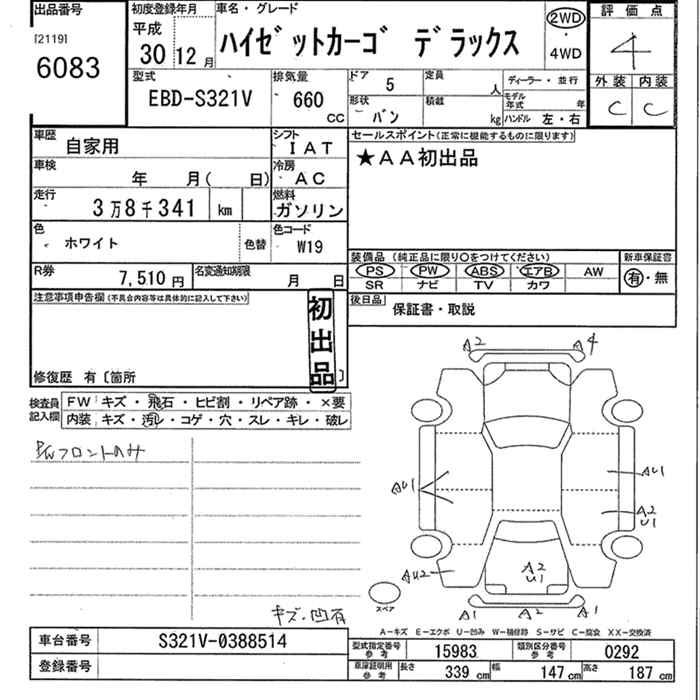 出品番号
[2119]
6083
初度登録年月
平成
30 12月
車名・グレード
ハイゼットカーゴ デラックス
2WD
・
4WD
評価点
4
外装 内装
C C
型式
EBD-S321V
排気量
660
CC
ドア
5
定員
人
ディーラー・並行
モデル年式 年
形状
バン
積載
kg
ハンドル 左・右
車歴
自家用
シフト
IAT
車検
年 月( 日)
冷房
AC
走行
3万8千341 km
燃料
ガソリン
色
ホワイト
色替
色コード
W19
R券
7,510円
名変通知期限
月 日
セールスポイント(正常に機能するものに限ります)
★AA初出品
装備品 (純正品に限り○をつけてください)
PS PW ABS エアB AW
SR ナビ TV カワ
新車保証書
有・無
後日品
保証書・取説
注意事項申告欄(不具合内容等は具体的に記入して下さい)
初出品
修復歴 有〔箇所 〕
検査員記入欄
FW キズ・飛石・ヒビ割・リペア跡・×要
内装 キズ・汚レ・コゲ・穴・スレ・キレ・破レ
P/Wフロントのみ
キズ・凹有
A2 A4
AU1
AU1
A2
U1
AU2
A2
U1
スペア
A1 A2 A1
A-キズ E-エクボ U-凹み W-補修跡 S-サビ C-腐食 XX-交換済
車台番号
S321V-0388514
登録番号
型式指定番号
参考
15983
類別区分番号
参考
0292
車庫証明用
参考
長さ 339 cm 幅 147 cm 高さ 187 cm